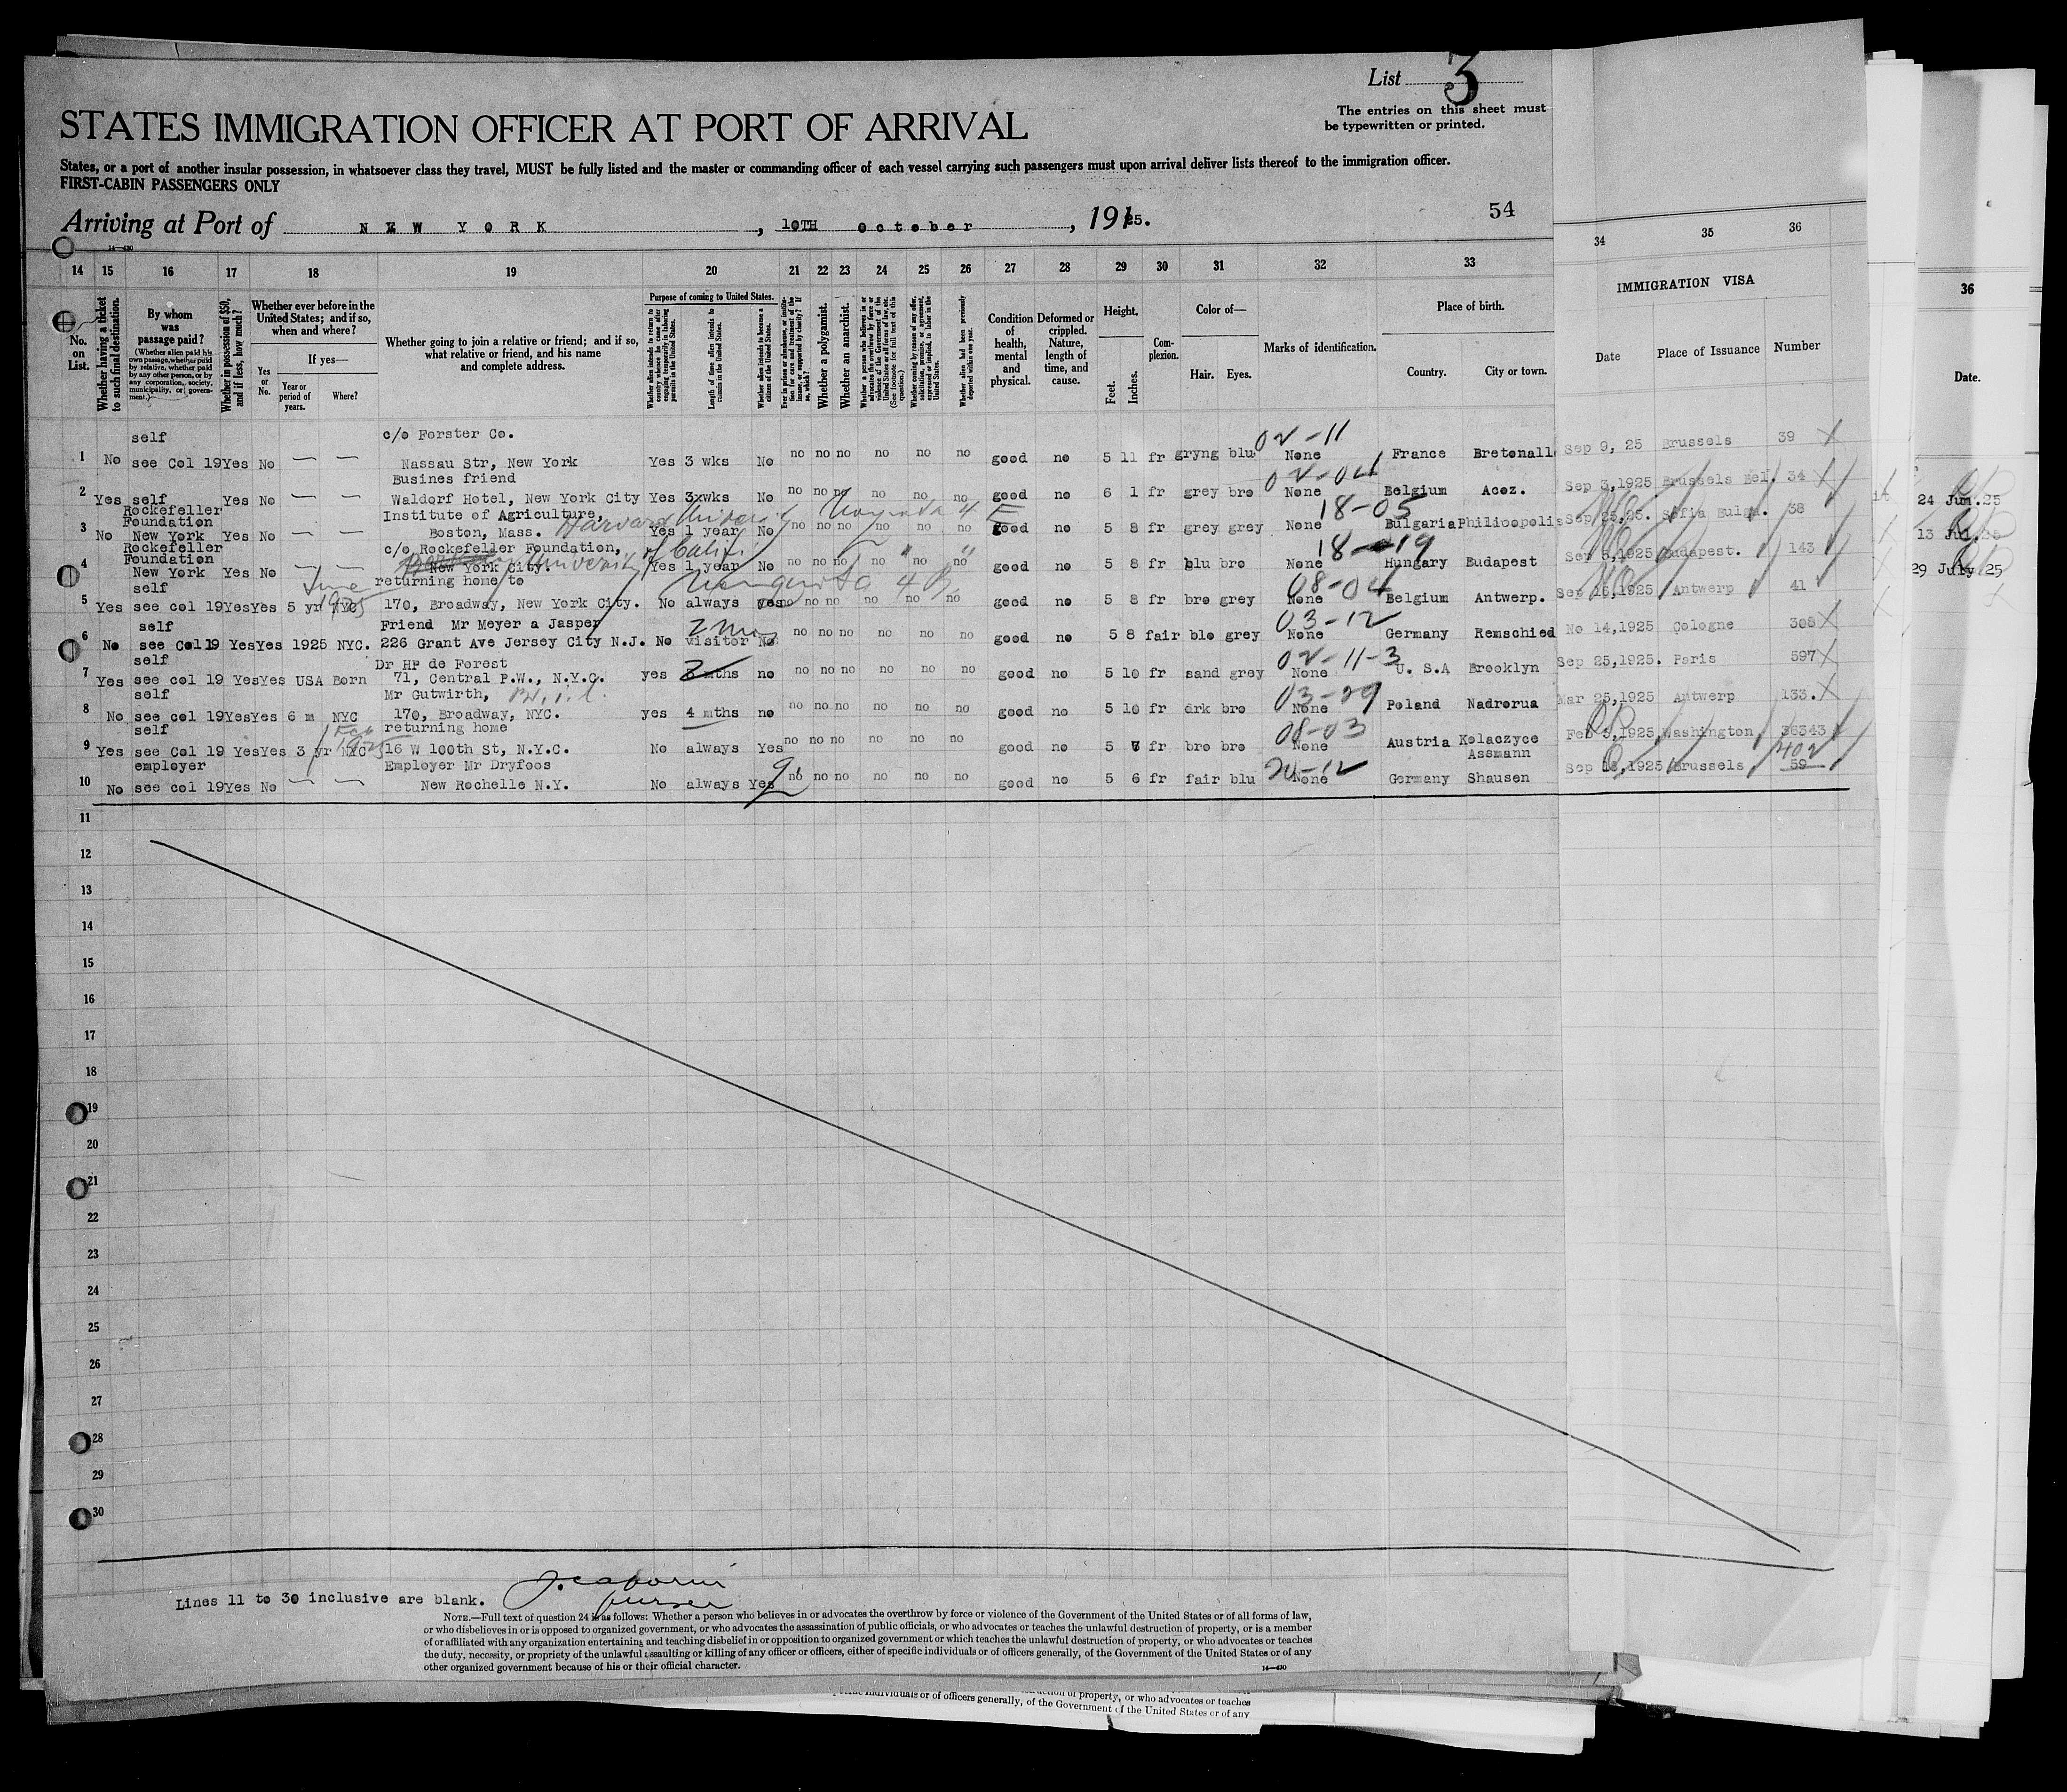 List 3
The entries on this sheet must
be typewritten or printed.
STATES IMMIGRATION OFFICER AT PORT OF ARRIVAL
States, or a port of another insular possession, in whatsoever class they travel, MUST be fully listed and the master or commanding officer of each vessel carrying such passengers must upon arrival deliver lists thereof to the immigration officer.
FIRST-CABIN PASSENGERS ONLY
Arriving at Port of NEW YORK, 10TH October, 1925.
54
14—430
14 15 16 17 18 19 20 21 22 23 24 25 26 27 28 29 30 31 32 33 34 35 36
No. on List.
Whether having a ticket to such final destination.
By whom was passage paid?
(Whether alien paid his own passage, whether paid by relative, whether paid by any other person, or by any corporation, society, municipality, or government.)
Whether in possession of $50, and if less, how much?
Whether ever before in the United States; and if so, when and where?
Yes or No.
If yes—
Year or period of years.
Where?
Whether going to join a relative or friend; and if so, what relative or friend, and his name and complete address.
Purpose of coming to United States.
Whether alien intends to return to country whence he came after engaging temporarily in laboring pursuits in the United States.
Length of time alien intends to remain in the United States.
Whether alien intends to become a citizen of the United States.
Whether a polygamist.
Whether an anarchist.
Whether alien had been previously deported within one year.
Condition of health, mental and physical.
Deformed or crippled. Nature, length of time, and cause.
Height.
Feet. Inches.
Complexion.
Color of—
Hair. Eyes.
Marks of identification.
Place of birth.
Country. City or town.
IMMIGRATION VISA
Date Place of Issuance Number
36
Date.
self c/o Forster Co. 02-11
1 No see Col 19 Yes No — — Nassau Str, New York Yes 3 wks No no no no no no no good no 5 11 fr gryng blu None France Bretonall Sep 9, 25 Brussels 39
Busines friend 02-04
2 Yes self Yes No — — Waldorf Hotel, New York City Yes 3xwks No no no no no no no good no 6 1 fr grey bro None Belgium Acoz. Sep 3,1925 Brussels Bel. 34
Rockefeller Foundation Institute of Agriculture, Harvard 18-05
3 No New York Yes No — — Boston, Mass. Yes 1 year No no no no no no no good no 5 8 fr grey grey None Bulgaria Philippopolis Sep 25,25. Sofia Bulga. 38
Rockefeller Foundation c/o Rockefeller Foundation, University of Calif. 18-19
4 New York Yes No — — New York City. Yes 1 year No no no no no no no good no 5 8 fr blu bro None Hungary Budapest Sep 8,1925 Budapest. 143
self June 1925 returning home to 08-04
5 Yes see col 19 Yes Yes 5 yr NYC 170, Broadway, New York City. No always yes no no no no no no good no 5 8 fr bro grey None Belgium Antwerp. Sep 16,1925 Antwerp 41
self Friend Mr Meyer a Jasper 2 mos 03-12
6 No see Col 19 Yes Yes 1925 NYC. 226 Grant Ave Jersey City N.J. No visitor No no no no no no no good no 5 8 fair blo grey None Germany Remschied No 14,1925 Cologne 308
self Dr HP de Forest 02-11-3
7 Yes see col 19 Yes Yes USA Born 71, Central P.W., N.Y.C. yes mths no no no no no no no good no 5 10 fr sand grey None U. S.A Brooklyn Sep 25,1925. Paris 597
self Mr Gutwirth, 03-29
8 No see col 19 Yes Yes 6 m NYC 170, Broadway, NYC. yes 4 mths no no no no no no no good no 5 10 fr drk bro None Poland Nadrorua Mar 25,1925 Antwerp 133.
self Feb 1925 returning home 08-03
9 Yes see Col 19 Yes Yes 3 yr NYC 16 W 100th St, N.Y.C. No always Yes no no no no no no good no 5 fr bro bro None Austria Kolaczyce Feb 5,1925 Washington 36343
employer Employer Mr Dryfoos 20-12 Assmann 402
10 No see col 19 Yes No — — New Rochelle N.Y. No always Yes no no no no no no good no 5 6 fr fair blu None Germany Shausen Sep 18,1925 Brussels 59
24 Jun.25
13 Jul.25
29 July 25
11
12
13
14
15
16
17
18
19
20
21
22
23
24
25
26
27
28
29
30
Lines 11 to 30 inclusive are blank.
purser
NOTE.—Full text of question 24 is as follows: Whether a person who believes in or advocates the overthrow by force or violence of the Government of the United States or of all forms of law,
or who disbelieves in or is opposed to organized government, or who advocates the assassination of public officials, or who advocates or teaches the unlawful destruction of property, or is a member
of or affiliated with any organization entertaining and teaching disbelief in or opposition to organized government or which teaches the unlawful destruction of property, or who advocates or teaches
the duty, necessity, or propriety of the unlawful assaulting or killing of any officer or officers, either of specific individuals or of officers generally, of the Government of the United States or of any
other organized government because of his or their official character.
14—430
individuals or of officers generally, of the Government of the United States or of any